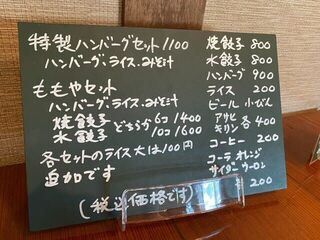 特製ハンバーグセット 1100
ハンバーグ・ライス・みそ汁
ももやセット
ハンバーグ・ライス・みそ汁
焼餃子 水餃子 どちらか 6コ 1400
10コ 1600
各セットのライス大は100円
追加です
(税込価格です)
焼餃子 800
水餃子 800
ハンバーグ 900
ライス 200
ビール 小びん
アサヒ キリン 各400
コーヒー 200
コーラ オレンジ
サイダー ウーロン
200